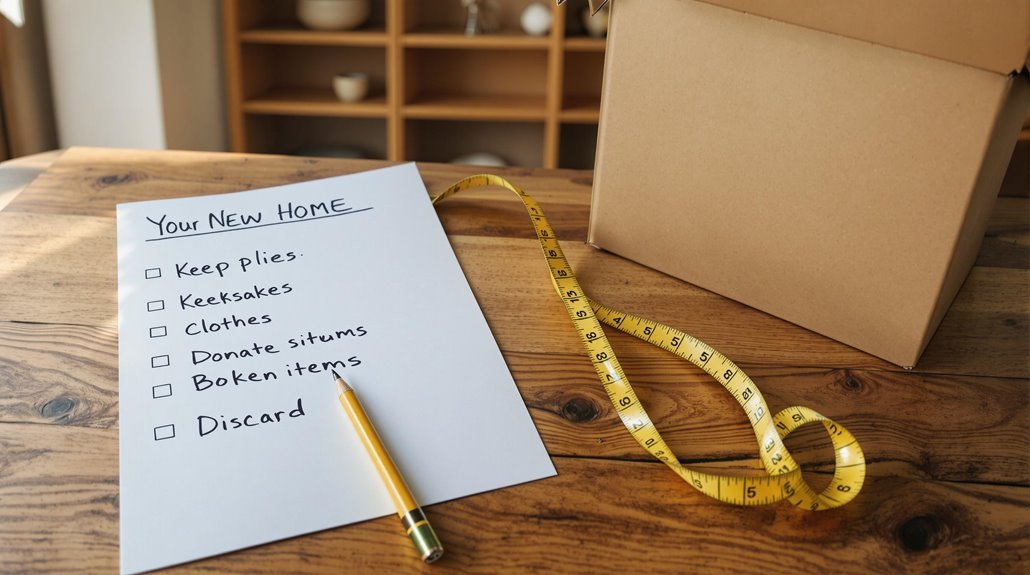 Your New Home
Keep plies.
Keeksakes
Clothes
Donate situms
Boken items
Discard